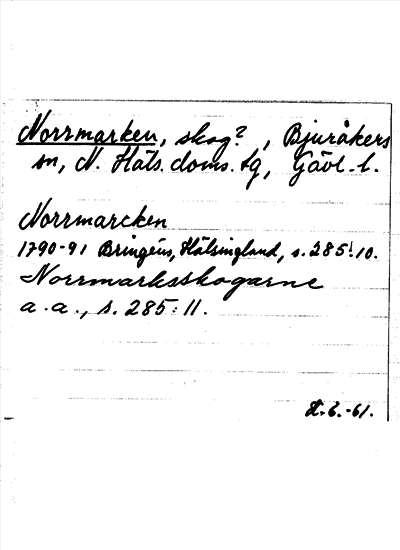 Norrmarken, skog?, Bjuråkers
sn, N. Häls. doms. tg, Gävl. l.
Norrmarcken
1790-91 Bringéus, Hälsingland, s. 285: 10.
Norrmarksskogarne
a. a., s. 285: 11.
-61.